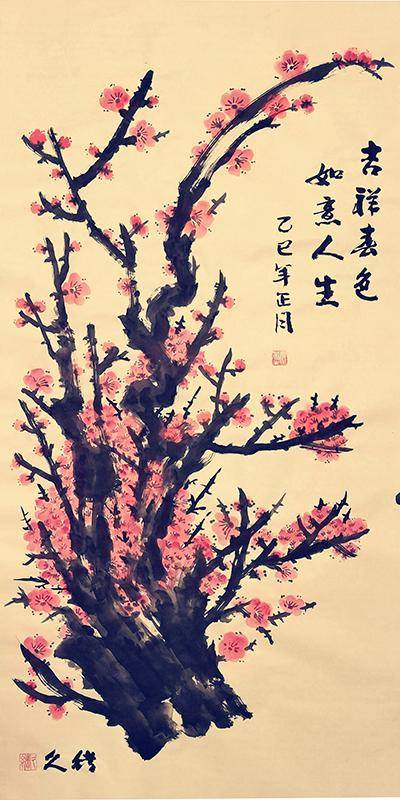 吉祥春色
如意人生
乙巳年正月